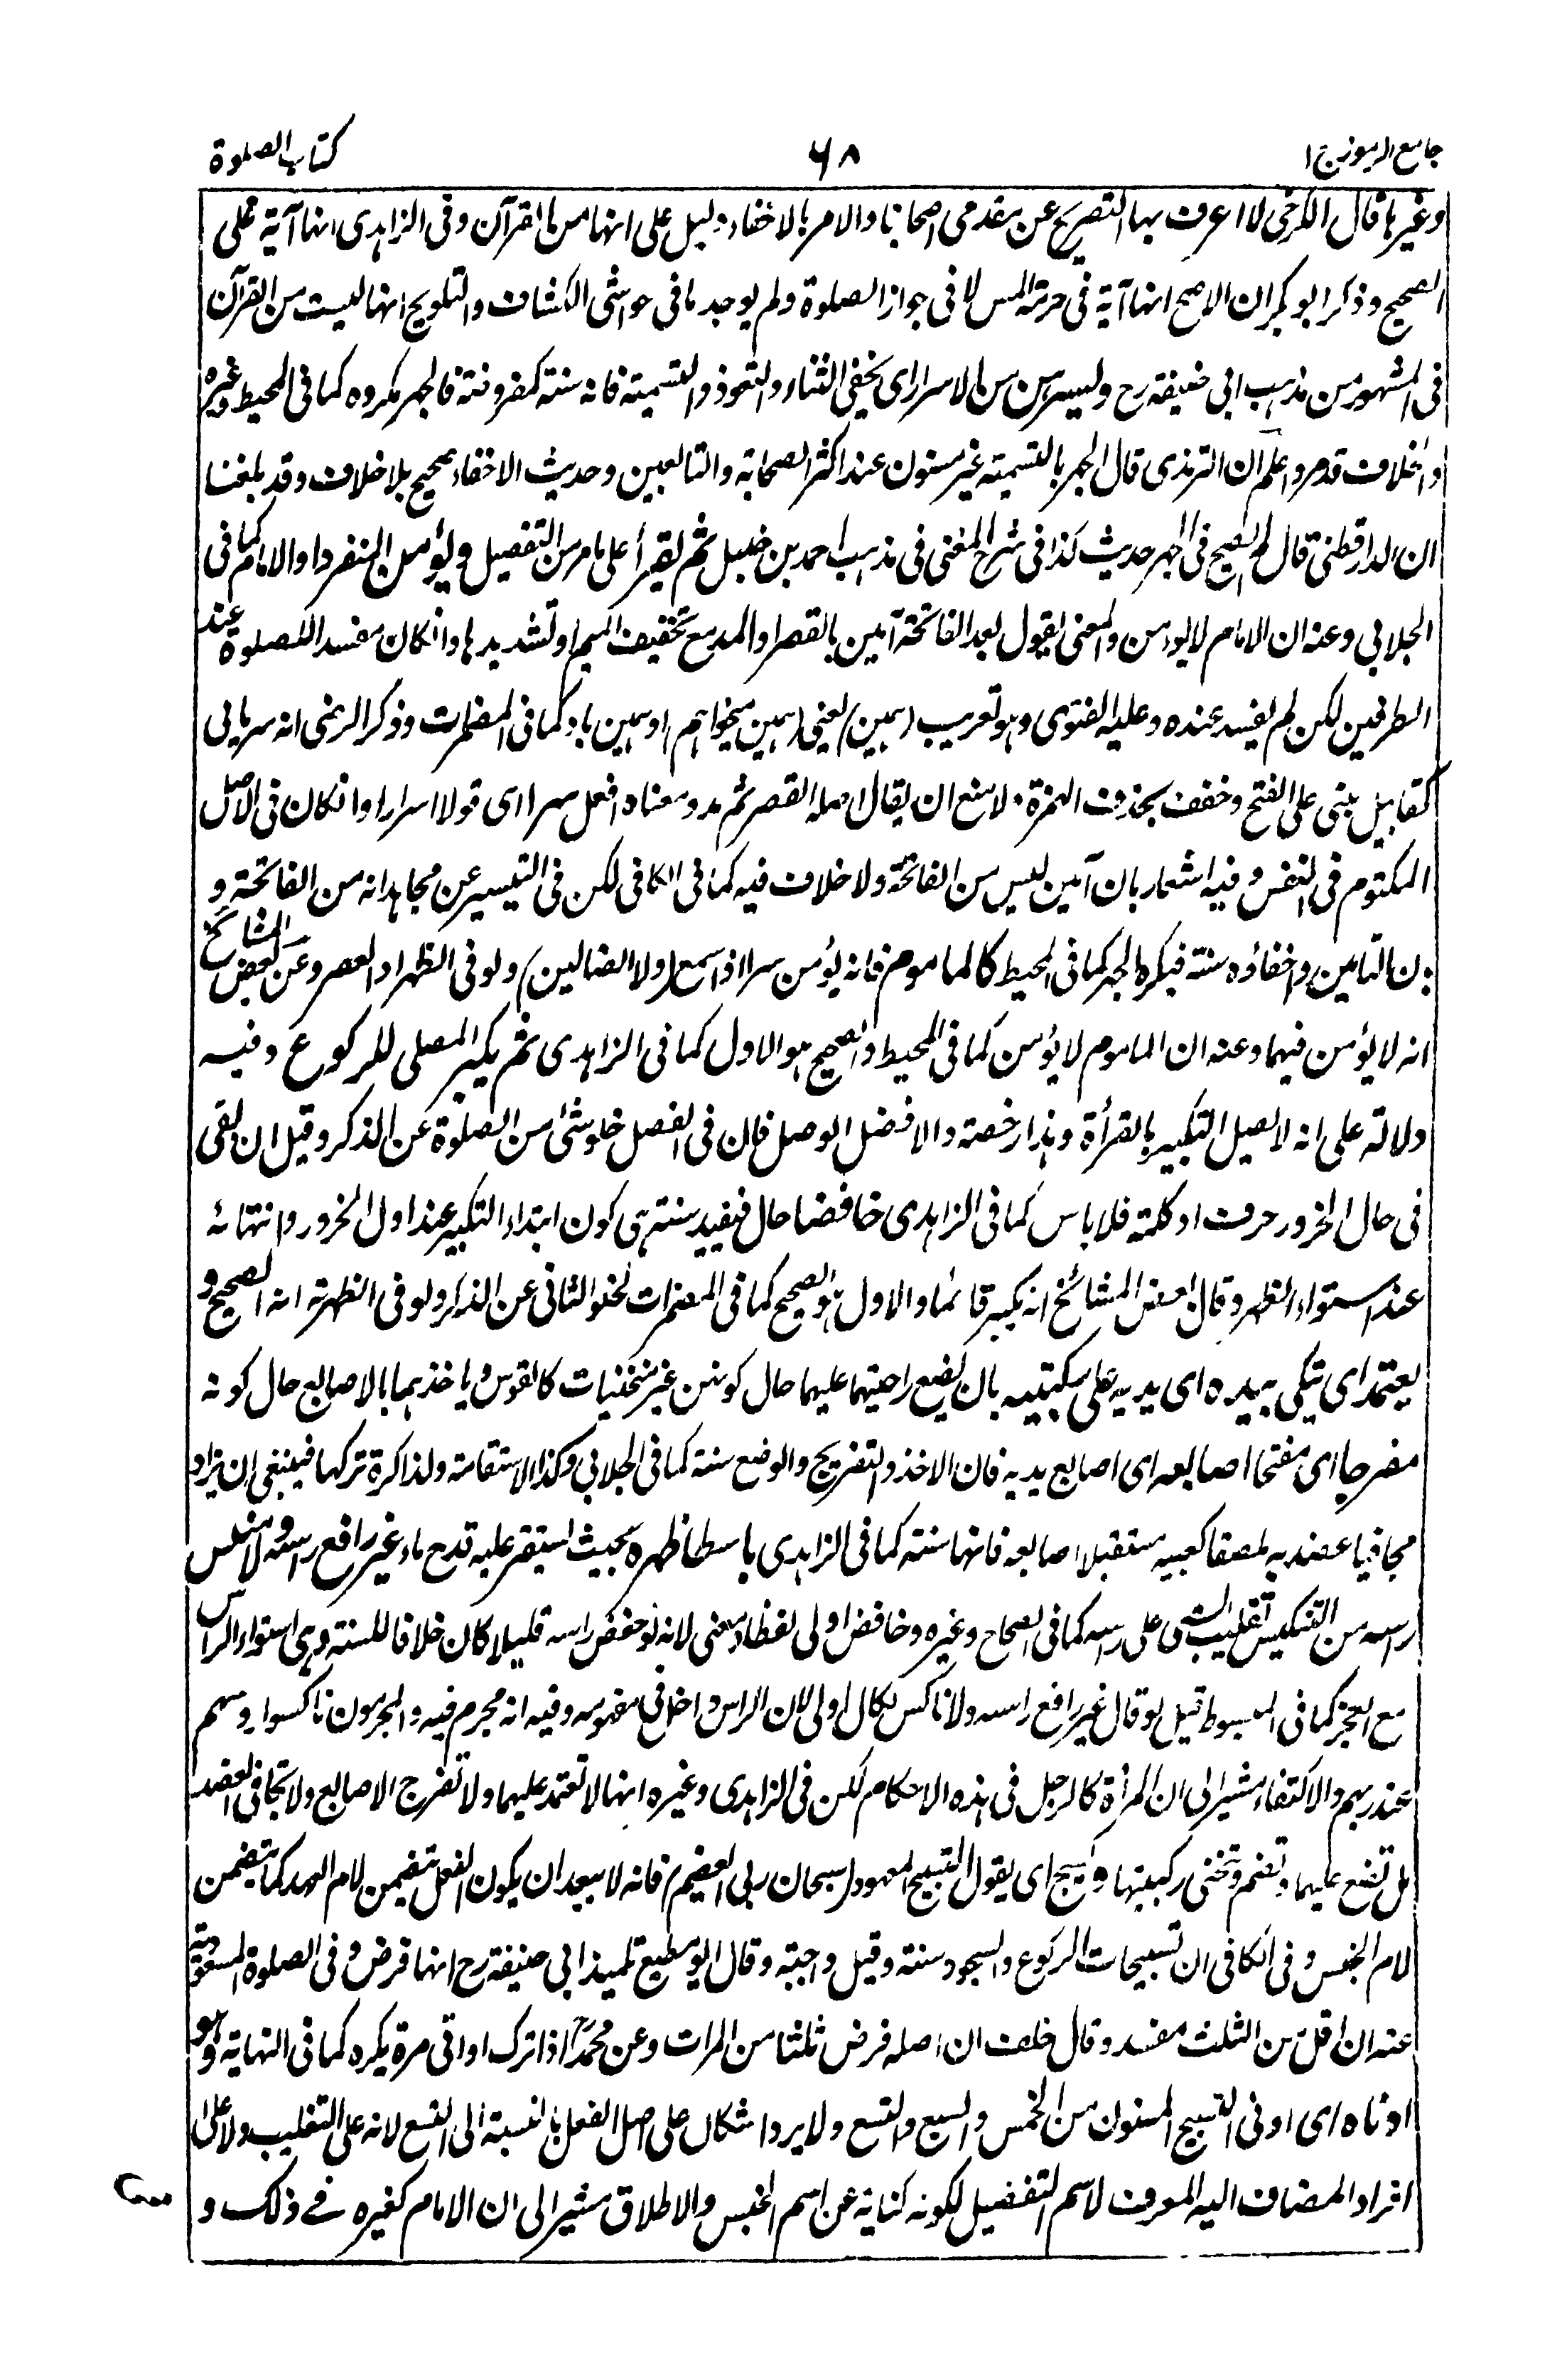 جامع الرموز ج ١
٦٨
كتاب الصلوة
وغيرها قال الكرخى لا اعرف بها التصريح عن متقدمى اصحابنا والامر بالاخفاء دليل على انها من القرآن وفى الزاهدى انها آية على
الصحيح وذكر ابو بكر ان الاصح انها آية فى حرمة المس لا فى جواز الصلوة ولم يوجد ما فى حواشى الكشاف والتلويح انها ليست من القرآن
فى المشهور من مذهب ابى حنيفة رح وليسرهن من الاسرار اى يخفى الثناء والتعوذ والتسمية فانه سنة كمفرونته فالجهر مكروه كما فى المحيط وغيره
والخلاف قد مر واعلم ان الترمذى قال الجهر بالتسمية غير مسنون عند اكثر الصحابة والتابعين وحديث الاخفاء صحيح بلا خلاف وقد بلغنا
ان الدارقطنى قال لم يصح فى الجهر حديث كذا فى شرح المغنى فى مذهب احمد بن حنبل ثم يقرأ على ما مر من التفصيل ويؤمن المنفرد او الامام كما فى
الجلابى وعنه ان الامام لا يؤمن والمعنى يقول بعد الفاتحة آمين بالقصر او المد مع تخفيف الميم او تشديدها وان كان مفسدا للصلوة عند
الطرفين لكن لم يفسد عنده وعليه الفتوى وهو تعريب (همين) يعنى (همين ميخواهم) او همين باد كما فى المضمرات وذكر الرضى انه سريانى
كقابيل بنى على الفتح وخفف بحذف الهمزة ولا منع ان يقال اصله القصر ثم مد ومعناه افعل سرا اى قولا اسرارا وان كان فى الاصل
المكتوم فى النفس وفيه اشعار بان آمين ليس من الفاتحة ولا خلاف فيه كما فى الكافى لكن فى التيسير عن مجاهد انه من الفاتحة و
بان التامين واخفاؤه سنة فيكره الجهر كما فى المحيط كالماموم فانه يؤمن سرا اذا سمع (ولا الضالين) ولو فى الظهر او العصر وعن بعض المشائخ
انه لا يؤمن فيهما وعنه ان الماموم لا يؤمن كما فى المحيط والصحيح هو الاول كما فى الزاهدى ثم يكبر المصلى للركوع وفيه
دلالة على انه لا يصل التكبير بالقرأة وهذا رخصة والافضل الوصل فان فى الفصل خلو شئ من الصلوة عن الذكر وقيل ان لقى
فى حال الخرور حرف او كلمة فلا باس كما فى الزاهدى خافضا حال فيفيد سنة هى كون ابتداء التكبير عند اول الخرور وانتهائه
عند استواء الظهر وقال بعض المشائخ انه يكبر قائما والاول هو الصحيح كما فى المضمرات لخلو الثانى عن الذكر ولو فى الظهرية انه الصحيح و
يعتمد اى يتكى بيده اى يديه على ركبتيه بان يضع راحتيهما عليهما حال كونهن غير منحنيات كالقوس ويأخذهما بالاصابع حال كونه
مفرجا اى مفتحا اصابعه اى اصابع يديه فان الاخذ والتفريج والوضع سنة كما فى الجلابى وكذا الاستقامة ولذا كره تركها فينبغى ان يزاد
مجافيا عضديه ملصقا كعبيه مستقبلا اصابعه فانها سنة كما فى الزاهدى باسطا ظهره بحيث استقر عليه قدح ماء غير رافع راسه ولا منكس
راسه من التنكيس تقليب الشئ على راسه كما فى الصحاح وغيره وخافض اولى لفظا ومعنى لانه لو خفض راسه قليلا كان خلافا للسنة وهى استواء الراس
مع العجز كما فى المبسوط قيل لو قال غير رافع راسه ولا ناكس لكان اولى لان الراس داخل فى مفهومه وفيه انه مجرم فيه والمجرمون ناكسوا رؤسهم
عند ربهم والاكتفاء مشير الى ان المرأة كالرجل فى هذه الاحكام لكن فى الزاهدى وغيره انها لا تعتمد عليهما ولا تفرج الاصابع ولا تجافى العضد
بل تضع عليهما وتضم وتحنى ركبتيها و يسبح اى يقول التسبيح المعهود (سبحان ربى العظيم) فانه لا يبعد ان يكون الفعل يتضمن لام العهد كما يتضمن
لام الجنس وفى الكافى ان تسبيحات الركوع والسجود سنة وقيل واجبة وقال ابو مطيع تلميذ ابى حنيفة رح انها فرض وفى الصلوة المسعودية
عنه ان اقل من الثلث مفسد وقال خلف ان اصله فرض ثلثا من المرات وعن محمدؒ اذا ترك او اتى مرة يكره كما فى النهاية وهو
ادناه اى ادنى التسبيح المسنون من الخمس والسبع والتسع ولا يرد اشكال على اصل الفعل بالنسبة الى التسع لانه على التغليب ولا على
افراد المضاف اليه المعرف لاسم التفضيل لكونه كناية عن اسم الجنس والاطلاق مشير الى ان الامام كغيره فى ذلك و